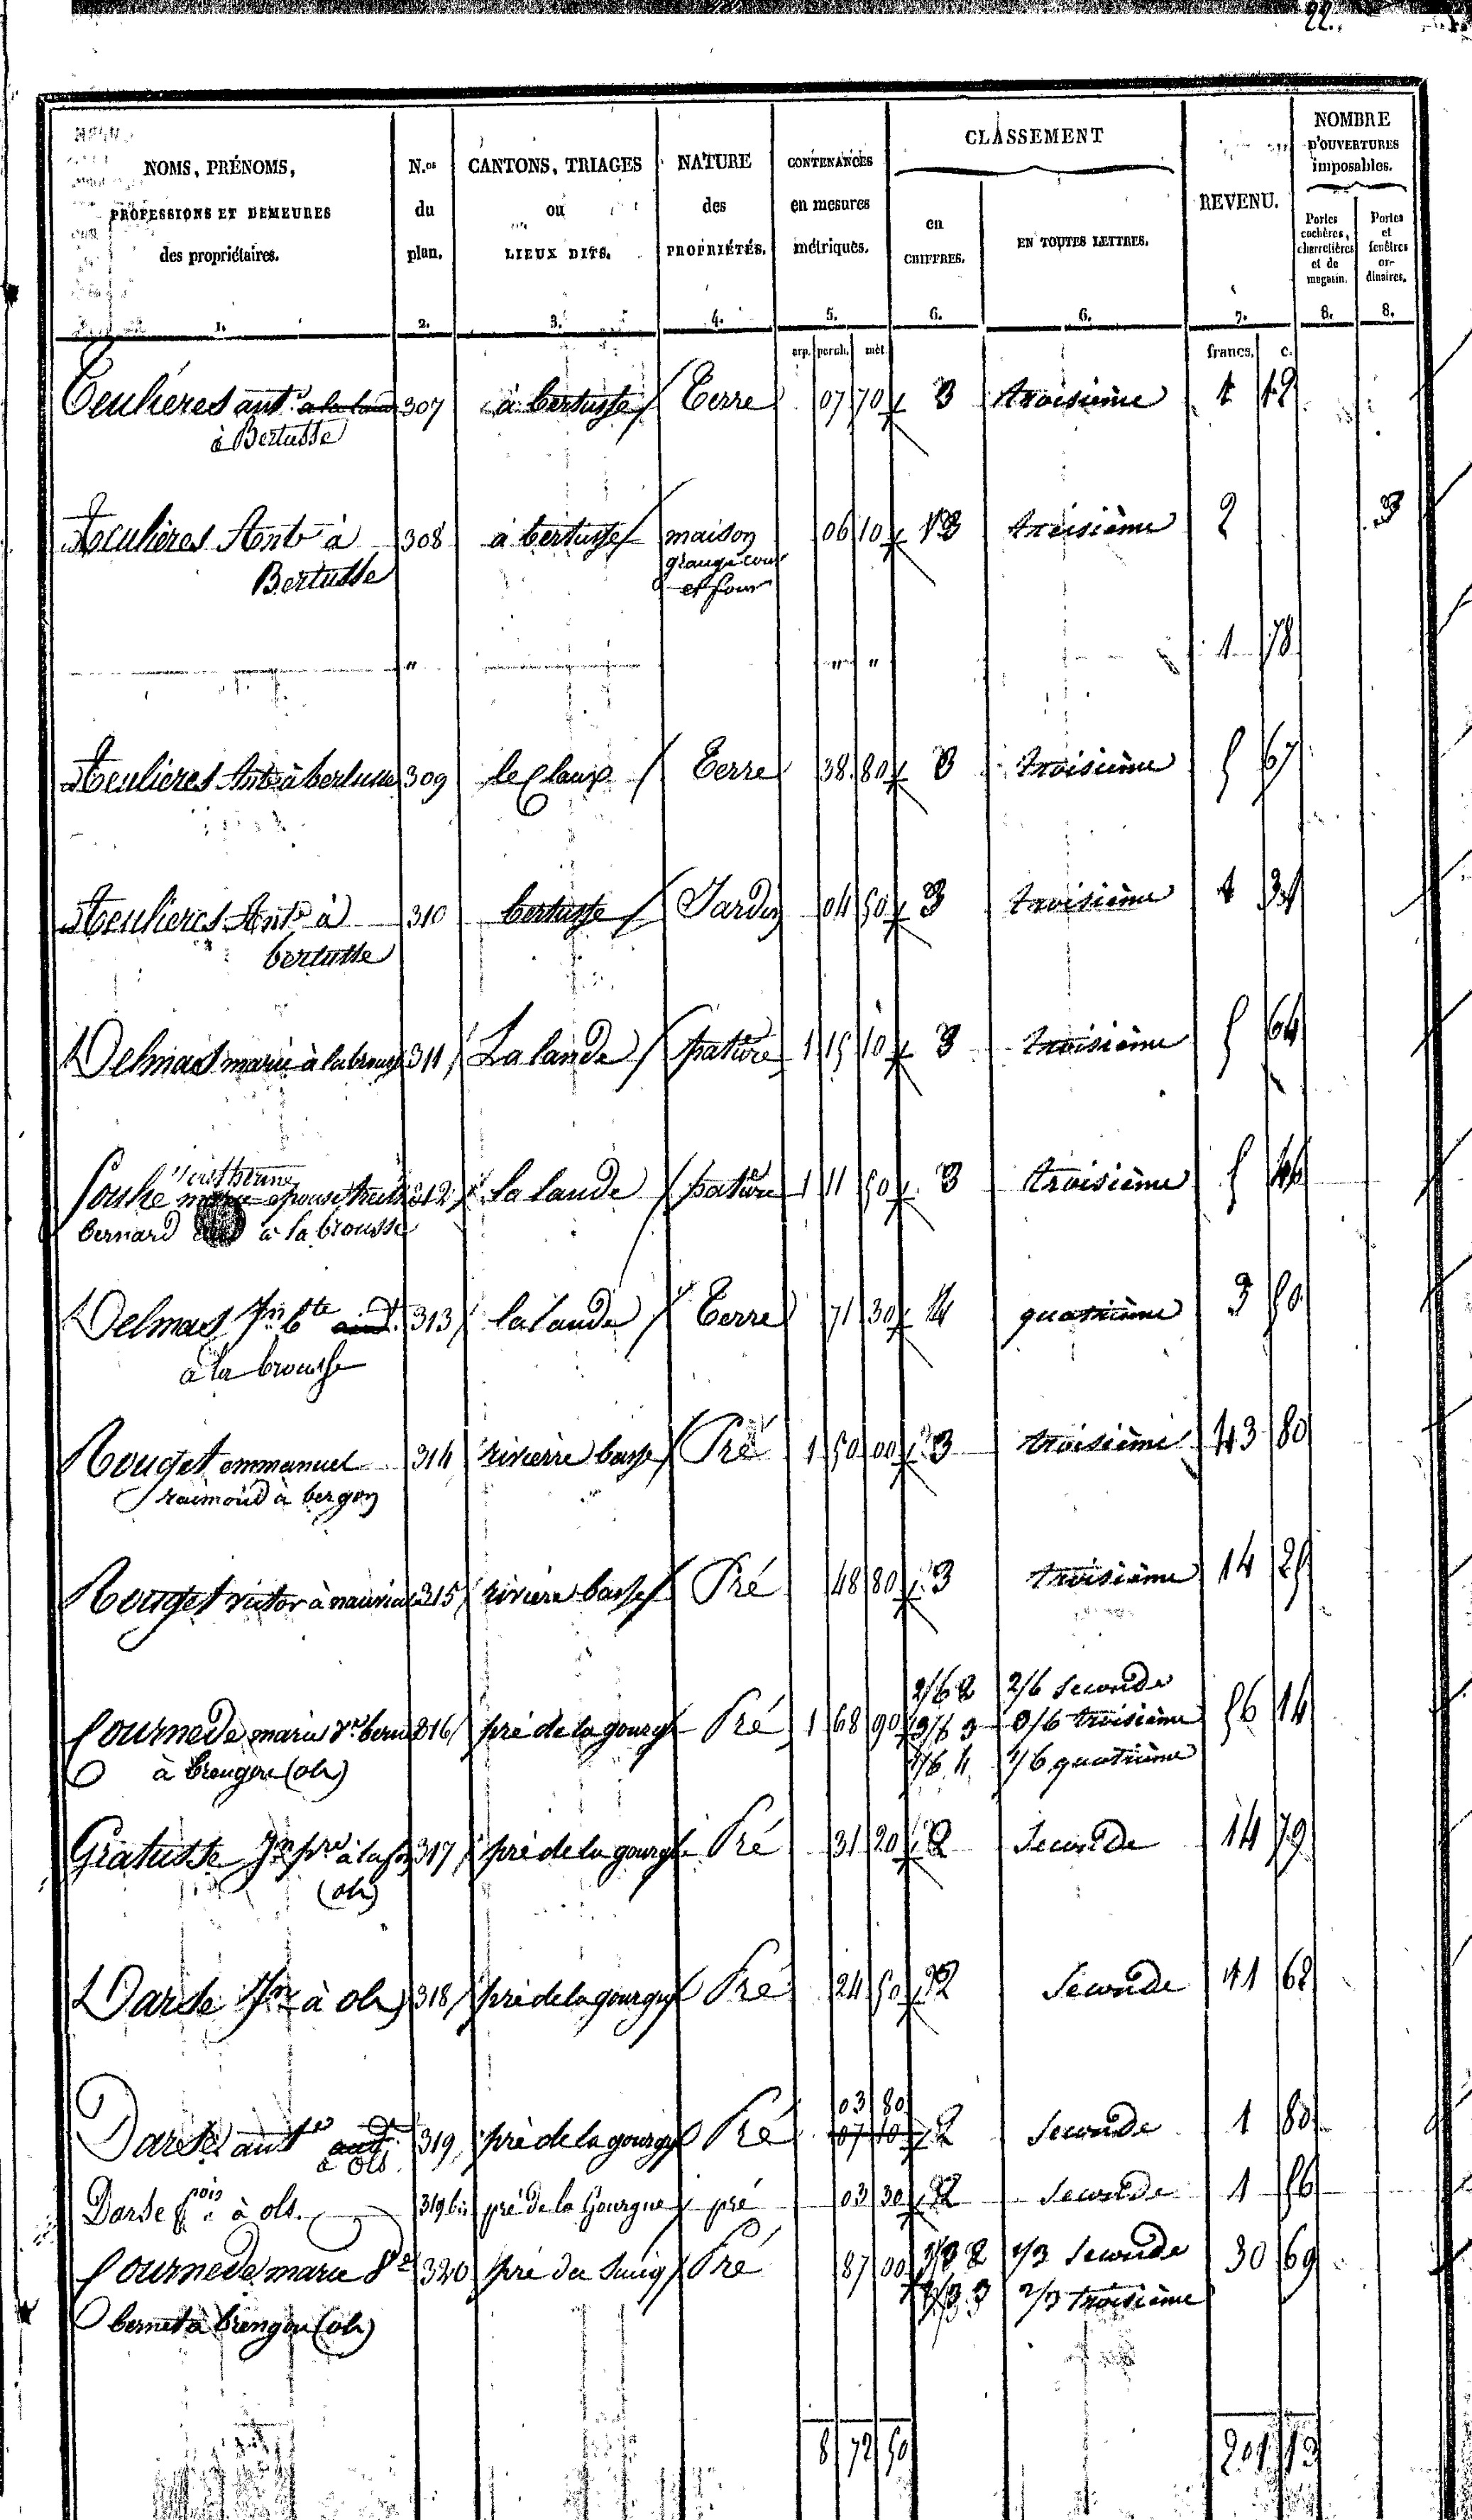 22.
NOMS, PRÉNOMS, PROFESSIONS ET DEMEURES des propriétaires. 1.
N.os du plan. 2.
CANTONS, TRIAGES ou LIEUX DITS. 3.
NATURE des PROPRIÉTÉS. 4.
CONTENANCES en mesures métriques. 5.
CLASSEMENT
en CHIFFRES. 6.
EN TOUTES LETTRES. 6.
REVENU. 7.
NOMBRE D'OUVERTURES imposables.
Portes cochères, charretières et de magasin. 8.
Portes et fenêtres ordinaires. 8.
arp. perch. mèt. francs. c.
Teulières ant.e à la lande 307 à bertusse Terre 07 70 3 troisième 1 12
à Bertusse
Teulières Ant.e à 308 à bertusse maison 06 10 3 troisième 2 3
Bertusse grange cour
et four
" " " 1 78
Teulières Ant.e à bertusse 309 le Claux Terre 38 80 3 troisième 5 67
Teulières Ant.e à 310 bertusse Jardin 04 50 3 troisième 1 31
bertusse
Delmas marie à labrousse 311 La lande pature 1 15 10 3 troisième 5 64
Souhe marie épouse 312 la lande pature 1 11 50 3 troisième 5 46
bernard à la brousse
Delmas Jn bte 313 la lande Terre 71 30 4 quatrième 3 50
à la brousse
Rouget emmanuel 314 rivierre basse Pré 1 50 00 3 troisième 43 80
raimond à bergon
Rouget victor à 315 riviere basse Pré 48 80 3 troisième 14 25
2/6 2 2/6 seconde
Cournede marie 316 pré de la gourgue Pré 1 68 90 3/6 3 3/6 troisième 56 14
à brengou (ols) 1/6 4 1/6 quatrième
Gratusse Jn pre 317 pré de la gourgue Pré 31 20 2 Seconde 14 79
(ols)
Darse Jn à ols 318 pré de la gourgue Pré 24 50 2 Seconde 11 62
03 80
Darse ant.e 319 pré de la gourgue Pré 07 10 2 Seconde 1 80
à ols
Darse fois à ols. 319 bis pré de la Gourgue pré 03 30 2 Seconde 1 56
Cournede marie 320 pré du Pré 87 00 1/3 2 1/3 Seconde 30 69
bernet à brengou (ols) 2/3 3 2/3 troisième
8 72 50 201 13